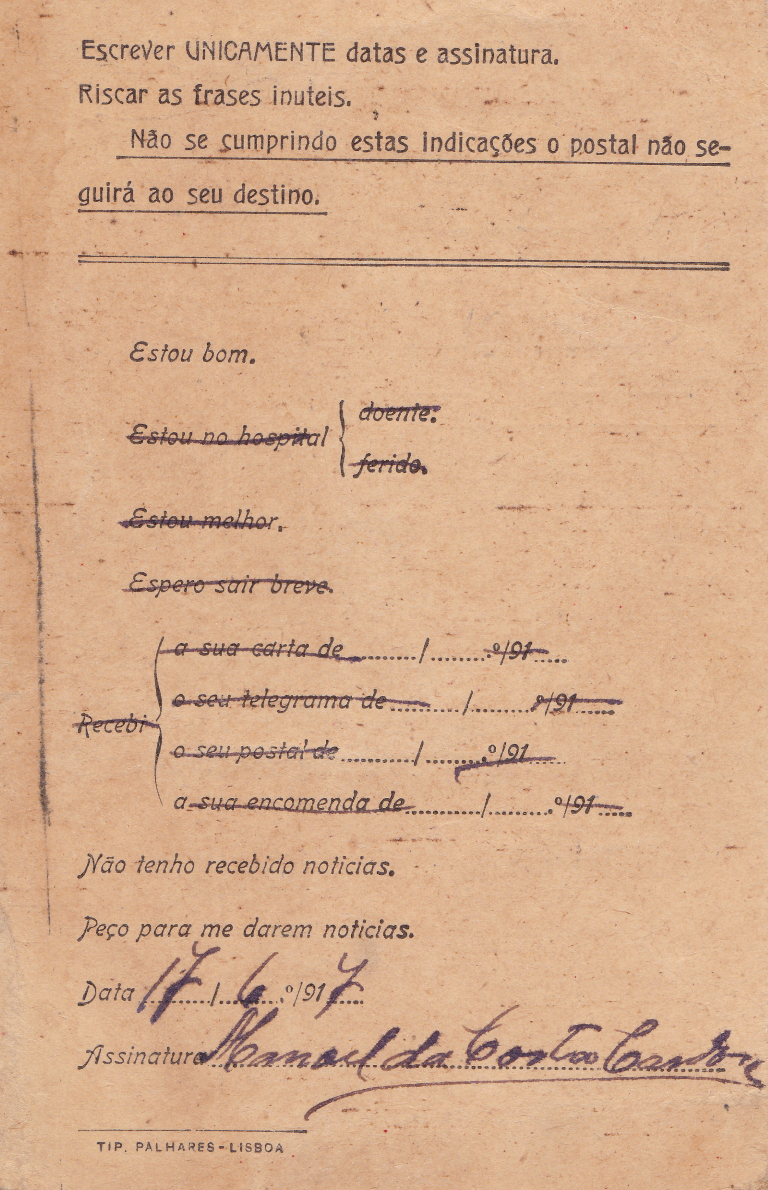 Escrever UNICAMENTE datas e assinatura.
Riscar as frases inuteis.
Não se cumprindo estas indicações o postal não se-
guirá ao seu destino.
Estou bom.
Estou no hospital { doente.
ferido.
Estou melhor.
Espero sair breve.
a sua carta de ......... / ......... º/91.....
o seu telegrama de ......... / ......... º/91.....
Recebi
o seu postal de ......... / ......... º/91.....
a sua encomenda de ......... / ......... º/91.....
Não tenho recebido noticias.
Peço para me darem noticias.
Data 17 / 6 º/917
Assinatura Manoel da Costa
TIP. PALHARES-LISBOA